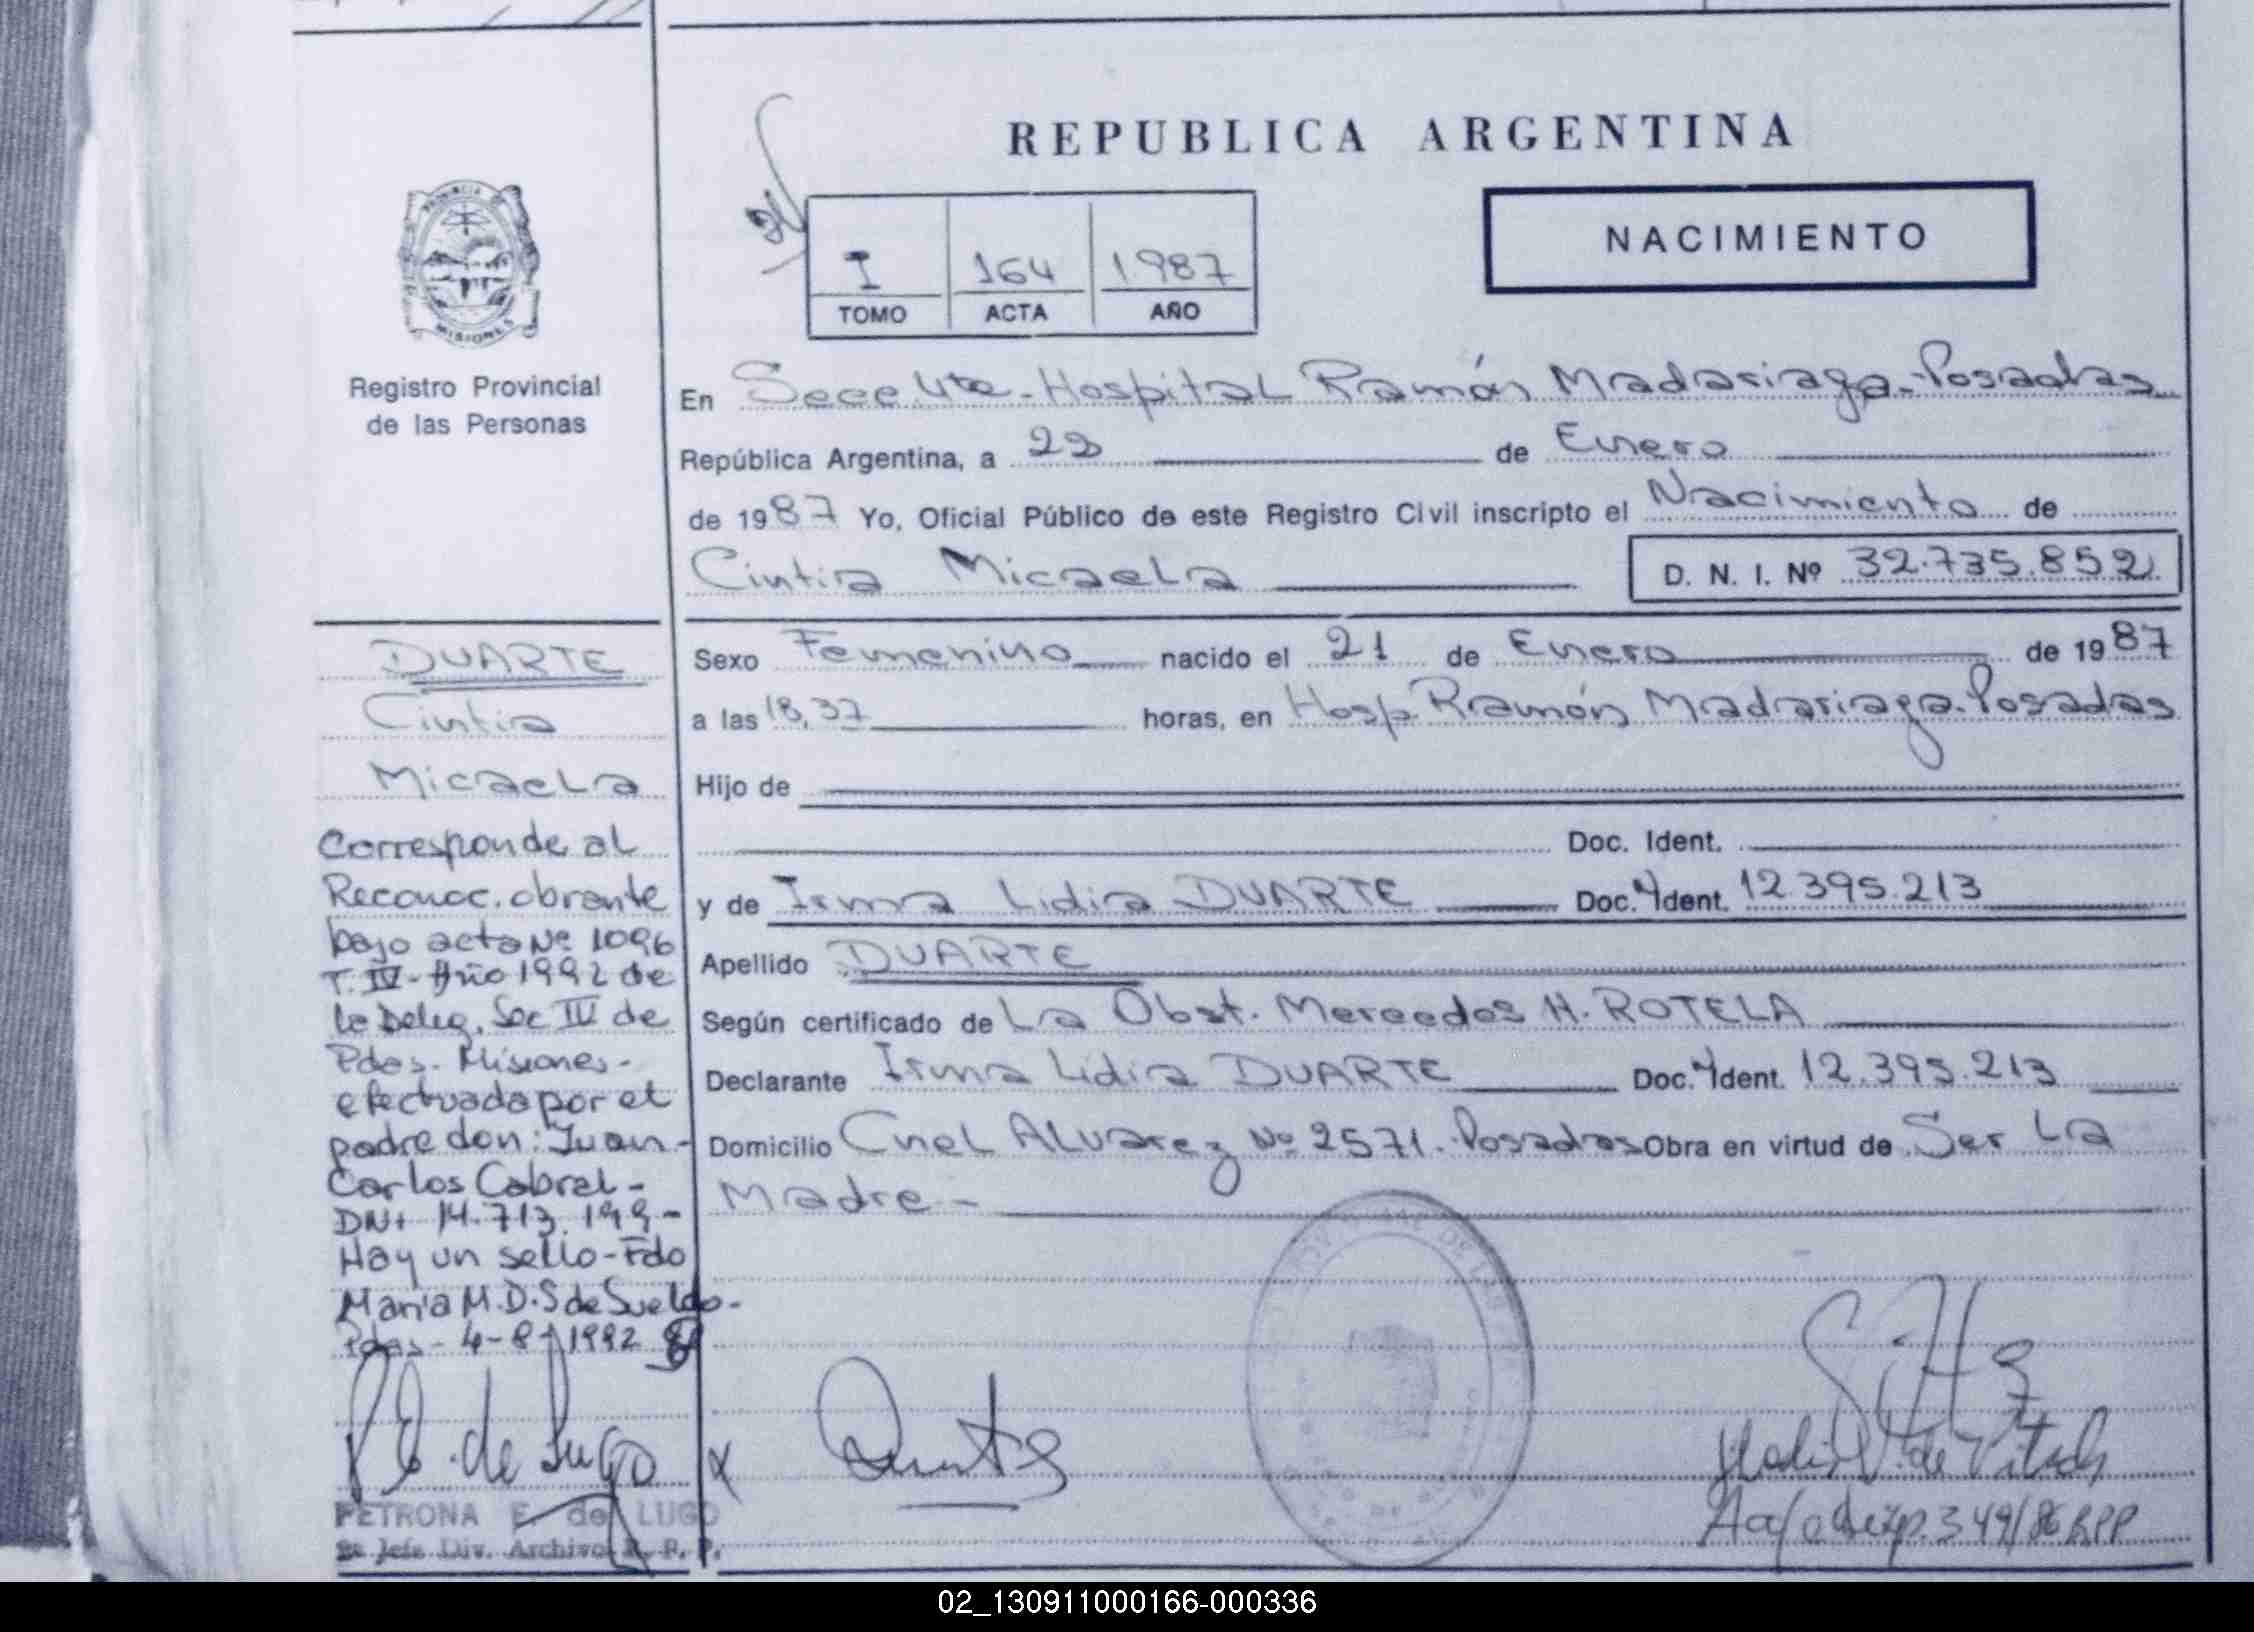 REPUBLICA ARGENTINA
NACIMIENTO
I 164 1987
TOMO ACTA AÑO
PROVINCIA
MISIONES
Registro Provincial
de las Personas
En Secc 4ta - Hospital Ramón Madariaga - Posadas
República Argentina, a 22 de Enero
de 1987 Yo, Oficial Público de este Registro Civil inscripto el Nacimiento de
Cintia Micaela D. N. I. Nº 32.735.852
Sexo Femenino nacido el 21 de Enero de 1987
a las 18,37 horas, en Hosp. Ramón Madariaga. Posadas
Hijo de
Doc. Ident.
y de Irma Lidia DUARTE Doc. Ident. 12.395.213
Apellido DUARTE
Según certificado de La Obst. Mercedes H. ROTELA
Declarante Irma Lidia DUARTE Doc. Ident. 12.395.213
Domicilio Cnel Alvarez Nº 2571. Posadas Obra en virtud de Ser La
Madre -
DUARTE
Cintia
Micaela
Corresponde al
Reconoc. obrante
bajo acta Nº 1096
T. IV - Año 1992 de
la Deleg. Sec IV de
Pdas. Misiones -
efectuada por el
padre don: Juan -
Carlos Cabral -
DNI 14.713.199 -
Hay un sello - Fdo
Maria M.D.S de Sueldo -
Pdas - 4-8-1992
P E. de Lugo
PETRONA E. de LUGO
2ª Jefe Div. Archivo R. P. P.
x Duarte
de
349/86 RPP
02_130911000166-000336